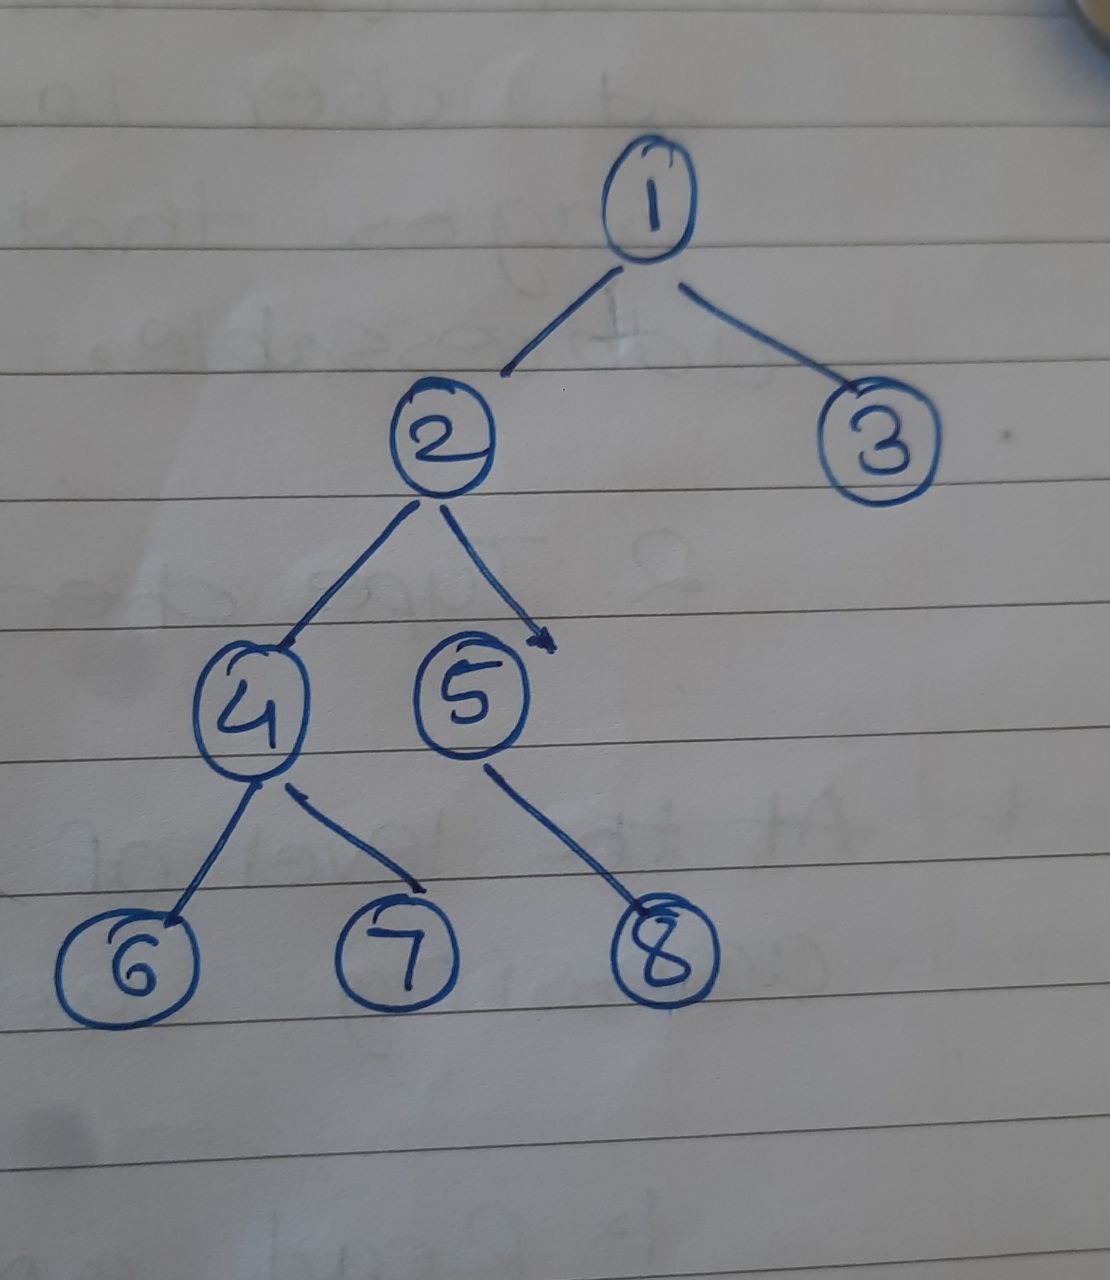 1
2 3
4 5
6 7 8